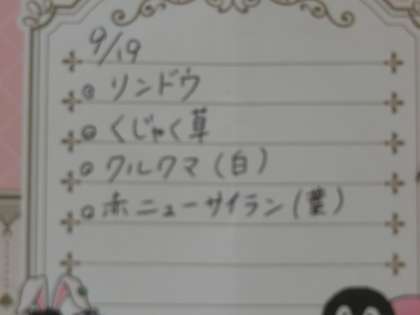 9/19
◎ リンドウ
◎ くじゃく草
◎ クルクマ(白)
◎ 赤ニューサイラン(葉)